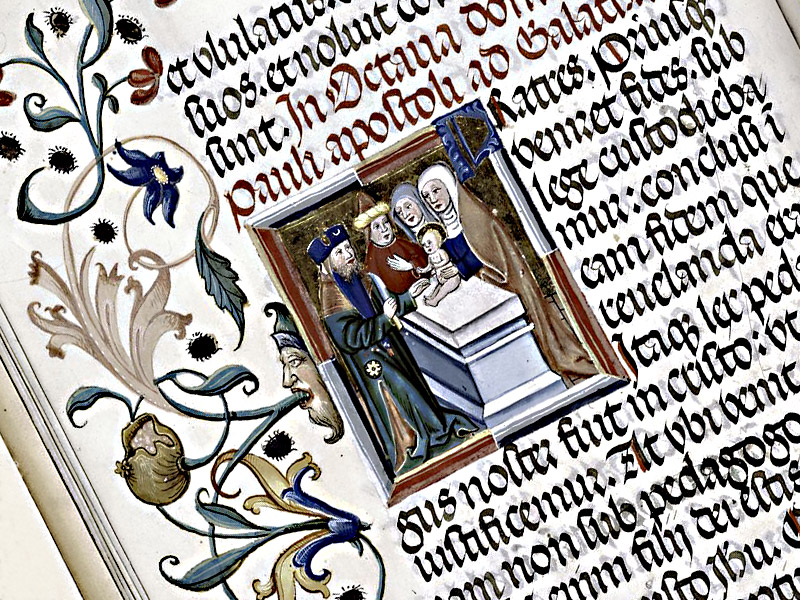 et vlulatus. et noluit co
suos. et noluit
sunt. In Octaua dom
Pauli apostoli ad Galat
Fratres. Priusq
veniret fides. sub
lege custodieba
mur: conclusi i
eam fidem que
reuelanda era
Itaq lex peda
gus noster fuit in cristo: vt
iustificemur. At vbi venit
iam non sub pedagogo
enim filij dei estis
isto Jhu.